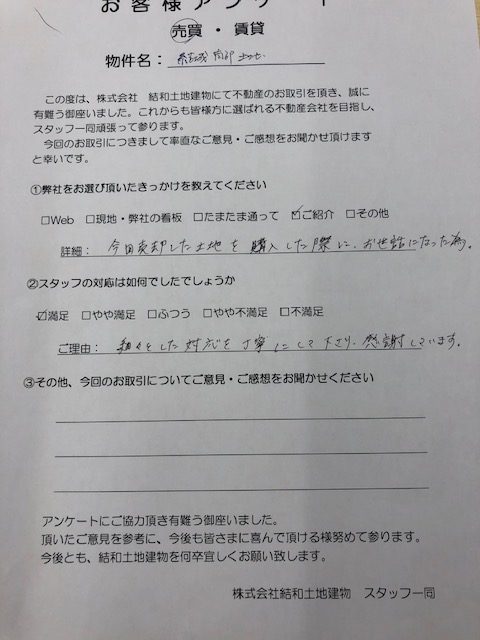 お客様アンケート
売買 ・ 賃貸
物件名: 結城 南部 土地
この度は、株式会社 結和土地建物にて不動産のお取引を頂き、誠に
有難う御座いました。これからも皆様方に選ばれる不動産会社を目指し、
スタッフ一同頑張って参ります。
今回のお取引につきまして率直なご意見・ご感想をお聞かせ頂けます
と幸いです。
①弊社をお選び頂いたきっかけを教えてください
□Web □現地・弊社の看板 □たまたま通って ☑ご紹介 □その他
詳細: 今回売却した土地を購入した際に、お世話になった為。
②スタッフの対応は如何でしたでしょうか
☑満足 □やや満足 □ふつう □やや不満足 □不満足
ご理由: 々とした対応を丁寧にして下さり、感謝しています。
③その他、今回のお取引についてご意見・ご感想をお聞かせください
アンケートにご協力頂き有難う御座いました。
頂いたご意見を参考に、今後も皆さまに喜んで頂ける様努めて参ります。
今後とも、結和土地建物を何卒宜しくお願い致します。
株式会社結和土地建物 スタッフ一同